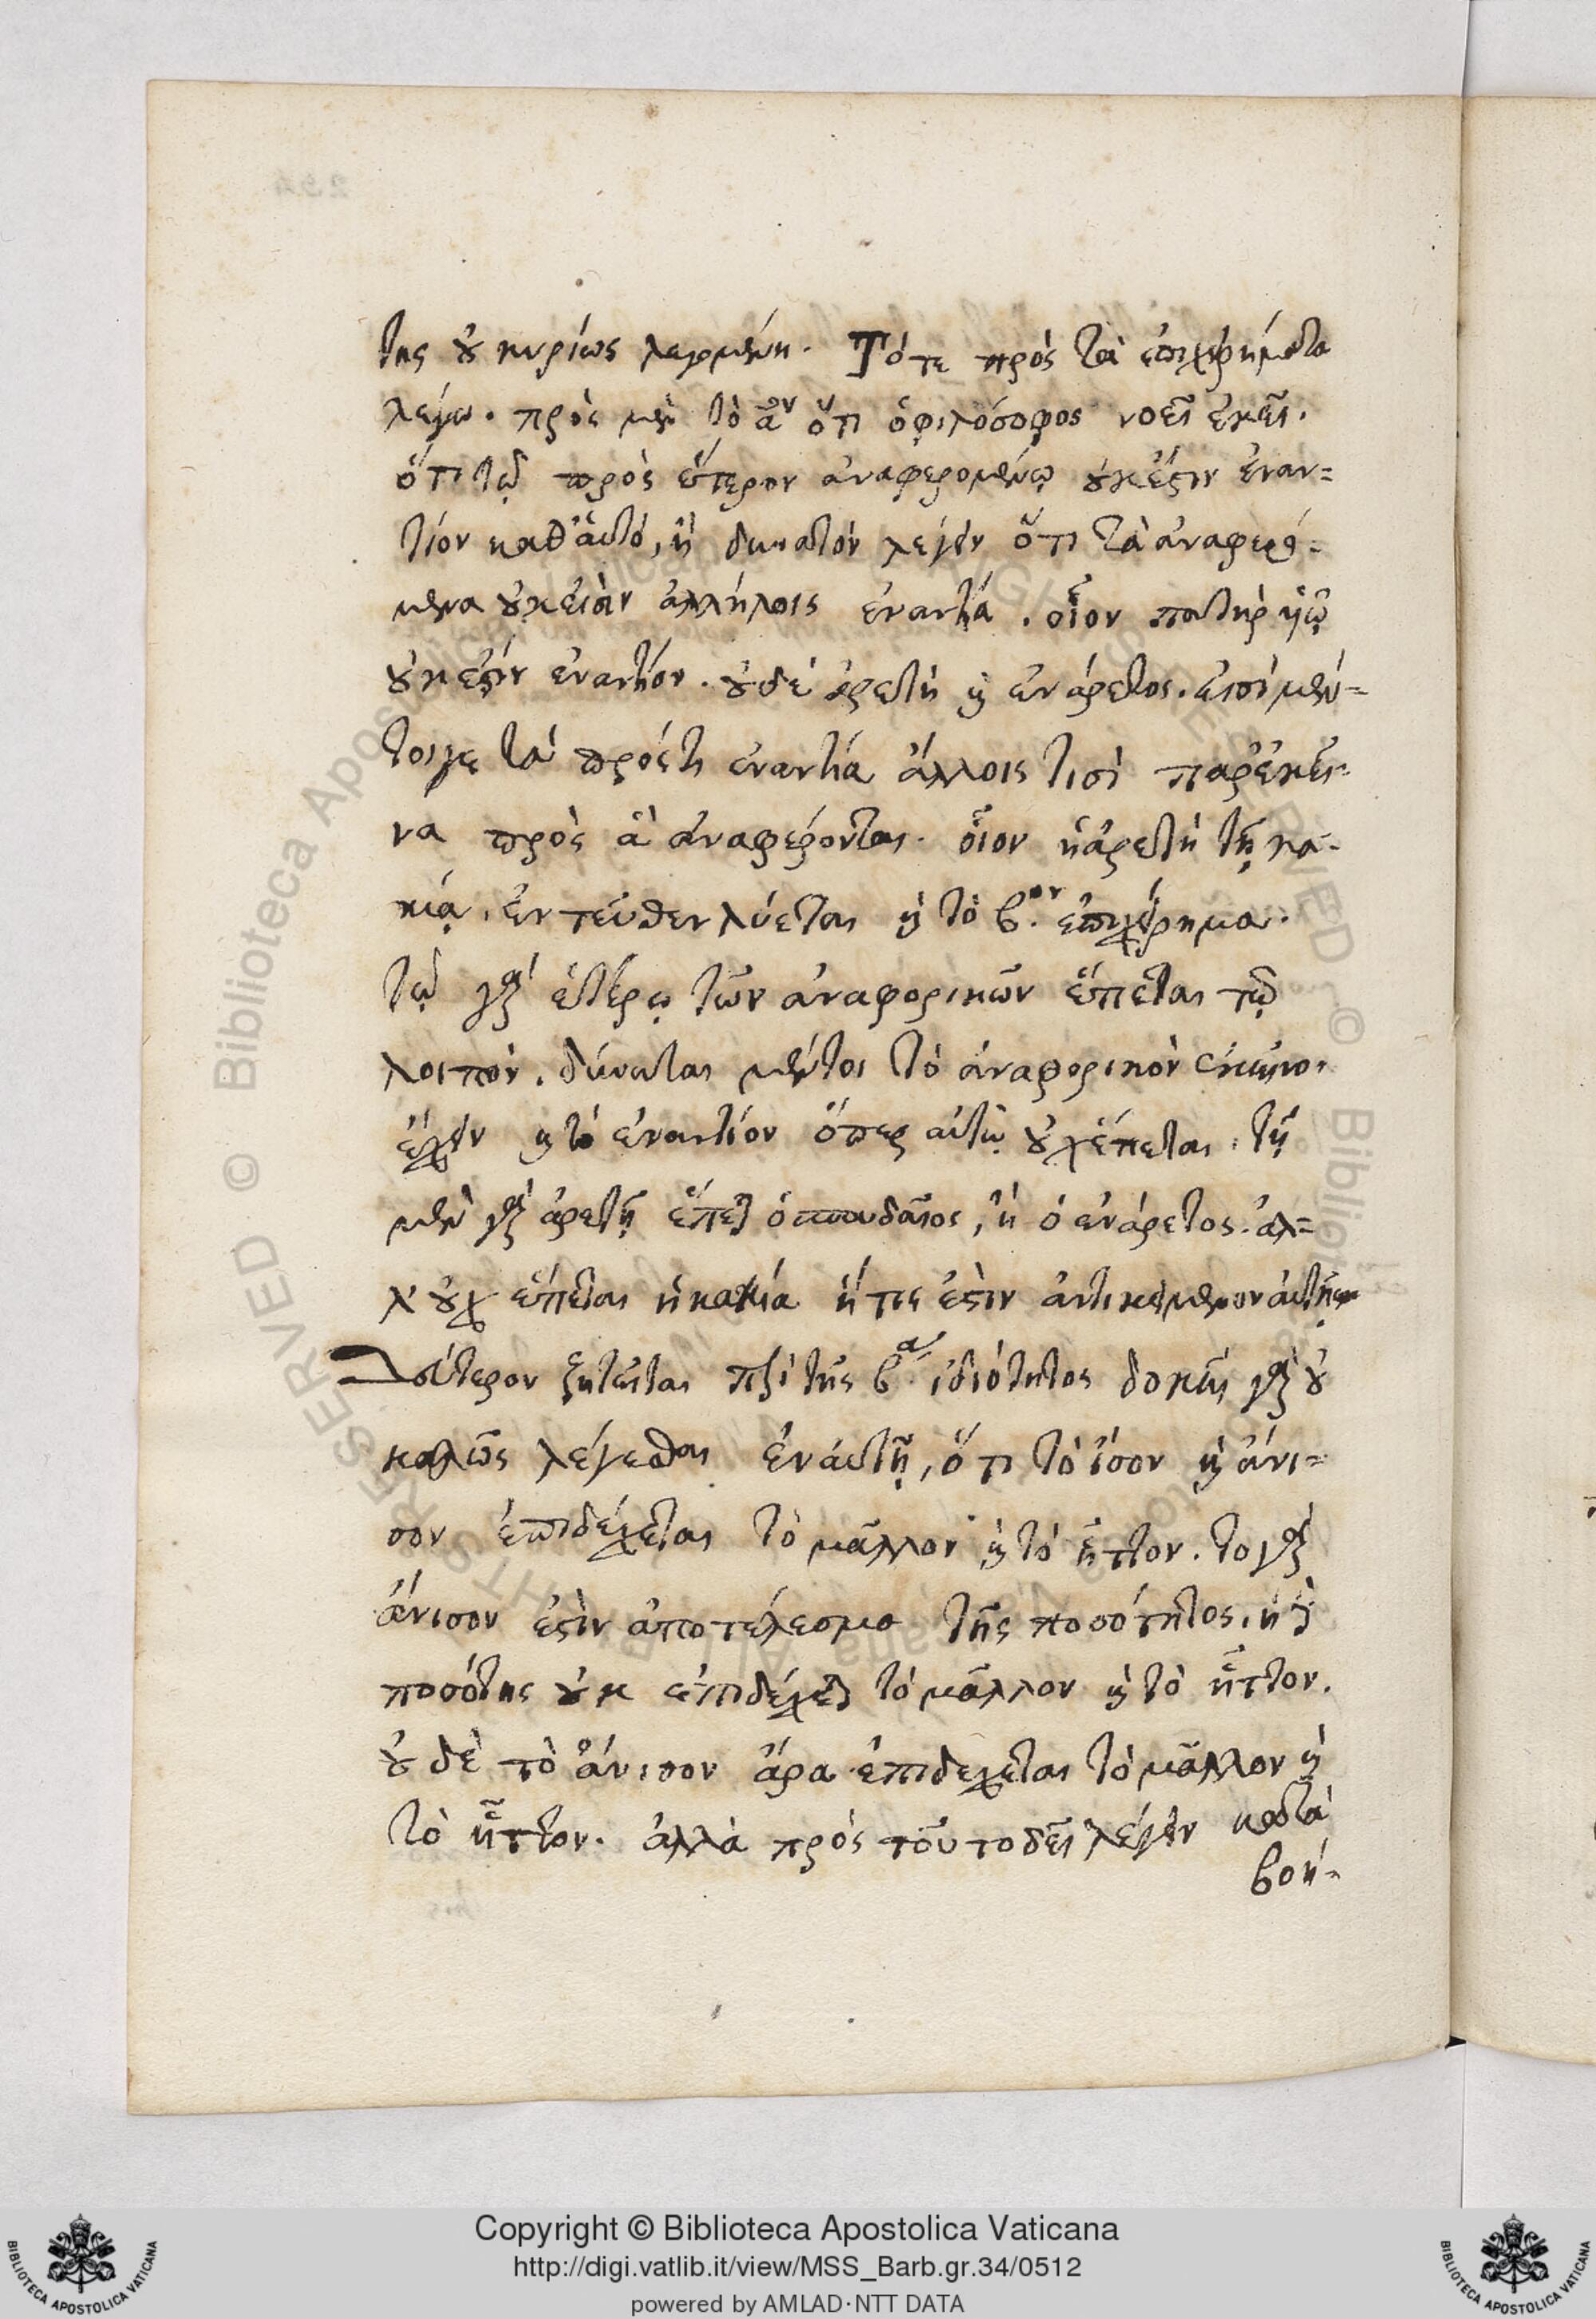 της οὐ κυρίως λεγομένη. Τότε πρὸς τὰ ἐπιχειρήματα
λέγω. πρὸς μὲν τὸ αον ὅτι ὁ φιλόσοφος νοεῖ ἐκεῖ.
ὅτι τῷ πρὸς ἕτερον ἀναφερομένῳ οὐκ ἔστιν ἐναν=
τίον καθ' αὐτό, ἢ δυνατὸν λέγειν ὅτι τὰ ἀναφερό=
μενα οὐκ εἰσὶν ἀλλήλοις ἐναντία. οἷον πατὴρ υἱῷ
οὐκ ἔστιν ἐναντίον. οὐδὲ ἀρετὴ καὶ ἐνάρετος. εἰσὶ μέν=
τοιγε τὰ πρός τι ἐναντία ἄλλοις τισὶ παρ' ἐκεῖ=
να πρὸς ἃ ἀναφέρονται. οἷον ἡ ἀρετὴ τῇ κα=
κίᾳ. ἐντεῦθεν λύεται καὶ τὸ β.ον ἐπιχείρημα.
τῷ γὰρ ἑτέρῳ τῶν ἀναφορικῶν ἕπεται τῷ
λοιπόν. δύναται μέντοι τὸ ἀναφορικὸν ἐκεῖνο
ἔχειν καὶ τὸ ἐναντίον ὅπερ αὐτῷ οὐχ ἕπεται. τῇ
μὲν γὰρ ἀρετῇ ἕπεται ὁ σπουδαῖος, ἢ ὁ ἐνάρετος. ἀλ=
λ' οὐχ ἕπεται ἡ κακία ἥτις ἐστὶν ἀντικείμενον αὐτῇ
Δεύτερον ζητεῖται περὶ τῆς β.ας ἰδιότητος δοκεῖ γὰρ οὐ
καλῶς λέγεσθαι ἐν αὐτῇ, ὅτι τὸ ἴσον καὶ ἄνι=
σον ἐπιδέχεται τὸ μᾶλλον καὶ τὸ ἧττον. το γὰρ
ἄνισον ἐστὶν ἀποτέλεσμα τῆς ποσότητος. ἡ δὲ
ποσότης οὐκ ἐπιδέχεται τὸ μᾶλλον καὶ τὸ ἧττον.
οὐδὲ τὸ ἄνισον ἄρα ἐπιδέχεται τὸ μᾶλλον καὶ
τὸ ἧττον. ἀλλὰ πρὸς τοῦτο δεῖ λέγειν κατὰ
βοή=
Copyright © Biblioteca Apostolica Vaticana
http://digi.vatlib.it/view/MSS_Barb.gr.34/0512
powered by AMLAD·NTT DATA